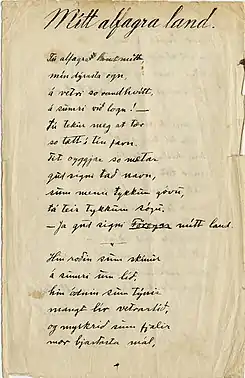 Mítt alfagra land.
Tú alfagra land mítt,
mín dýrasta ogn,
á vetri so randhvítt,
á sumri við logn! —
tú tekur meg at tær
so tætt í tín favn.
Tit oyggjar so mætar
guð signi tað navn,
sum menn tykkum góvu,
tá teir tykkum sóu.
— Ja guð signi Føroyar mítt land.
Hin roðin sum skínur
á sumri um líð,
hin ódnin sum týnir
mangt lív vetrartíð,
og myrkrið sum fjalir
mær bjartasta mál,